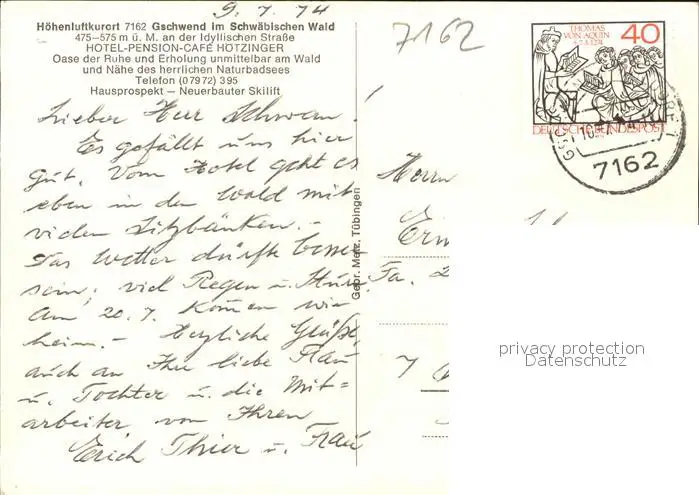 9. 7. 74
Höhenluftkurort 7162 Gschwend im Schwäbischen Wald
475–575 m ü. M. an der Idyllischen Straße
HOTEL-PENSION-CAFÉ HOTZINGER
Oase der Ruhe und Erholung unmittelbar am Wald
und Nähe des herrlichen Naturbadsees
Telefon (07972) 395
Hausprospekt — Neuerbauter Skilift
Lieber Herr Schwan.
Es gefällt uns hier
gut. Vom Hotel geht es
eben in den Wald mit
vielen Sitzbänken. -
Das Wetter dürfte besser
sein; viel Regen u. Sturm.
Am 20. 7. kommen wir
heim. - Herzliche Grüße,
auch an Ihre liebe Frau
u. Tochter u. die Mit=
arbeiter von Ihnen
Erich Thier u. Frau
Gebr. Metz, Tübingen
7162
THOMAS
VON AQUIN
40
DEUTSCHE BUNDESPOST
7162
Herrn
Fa.
7
privacy protection
Datenschutz